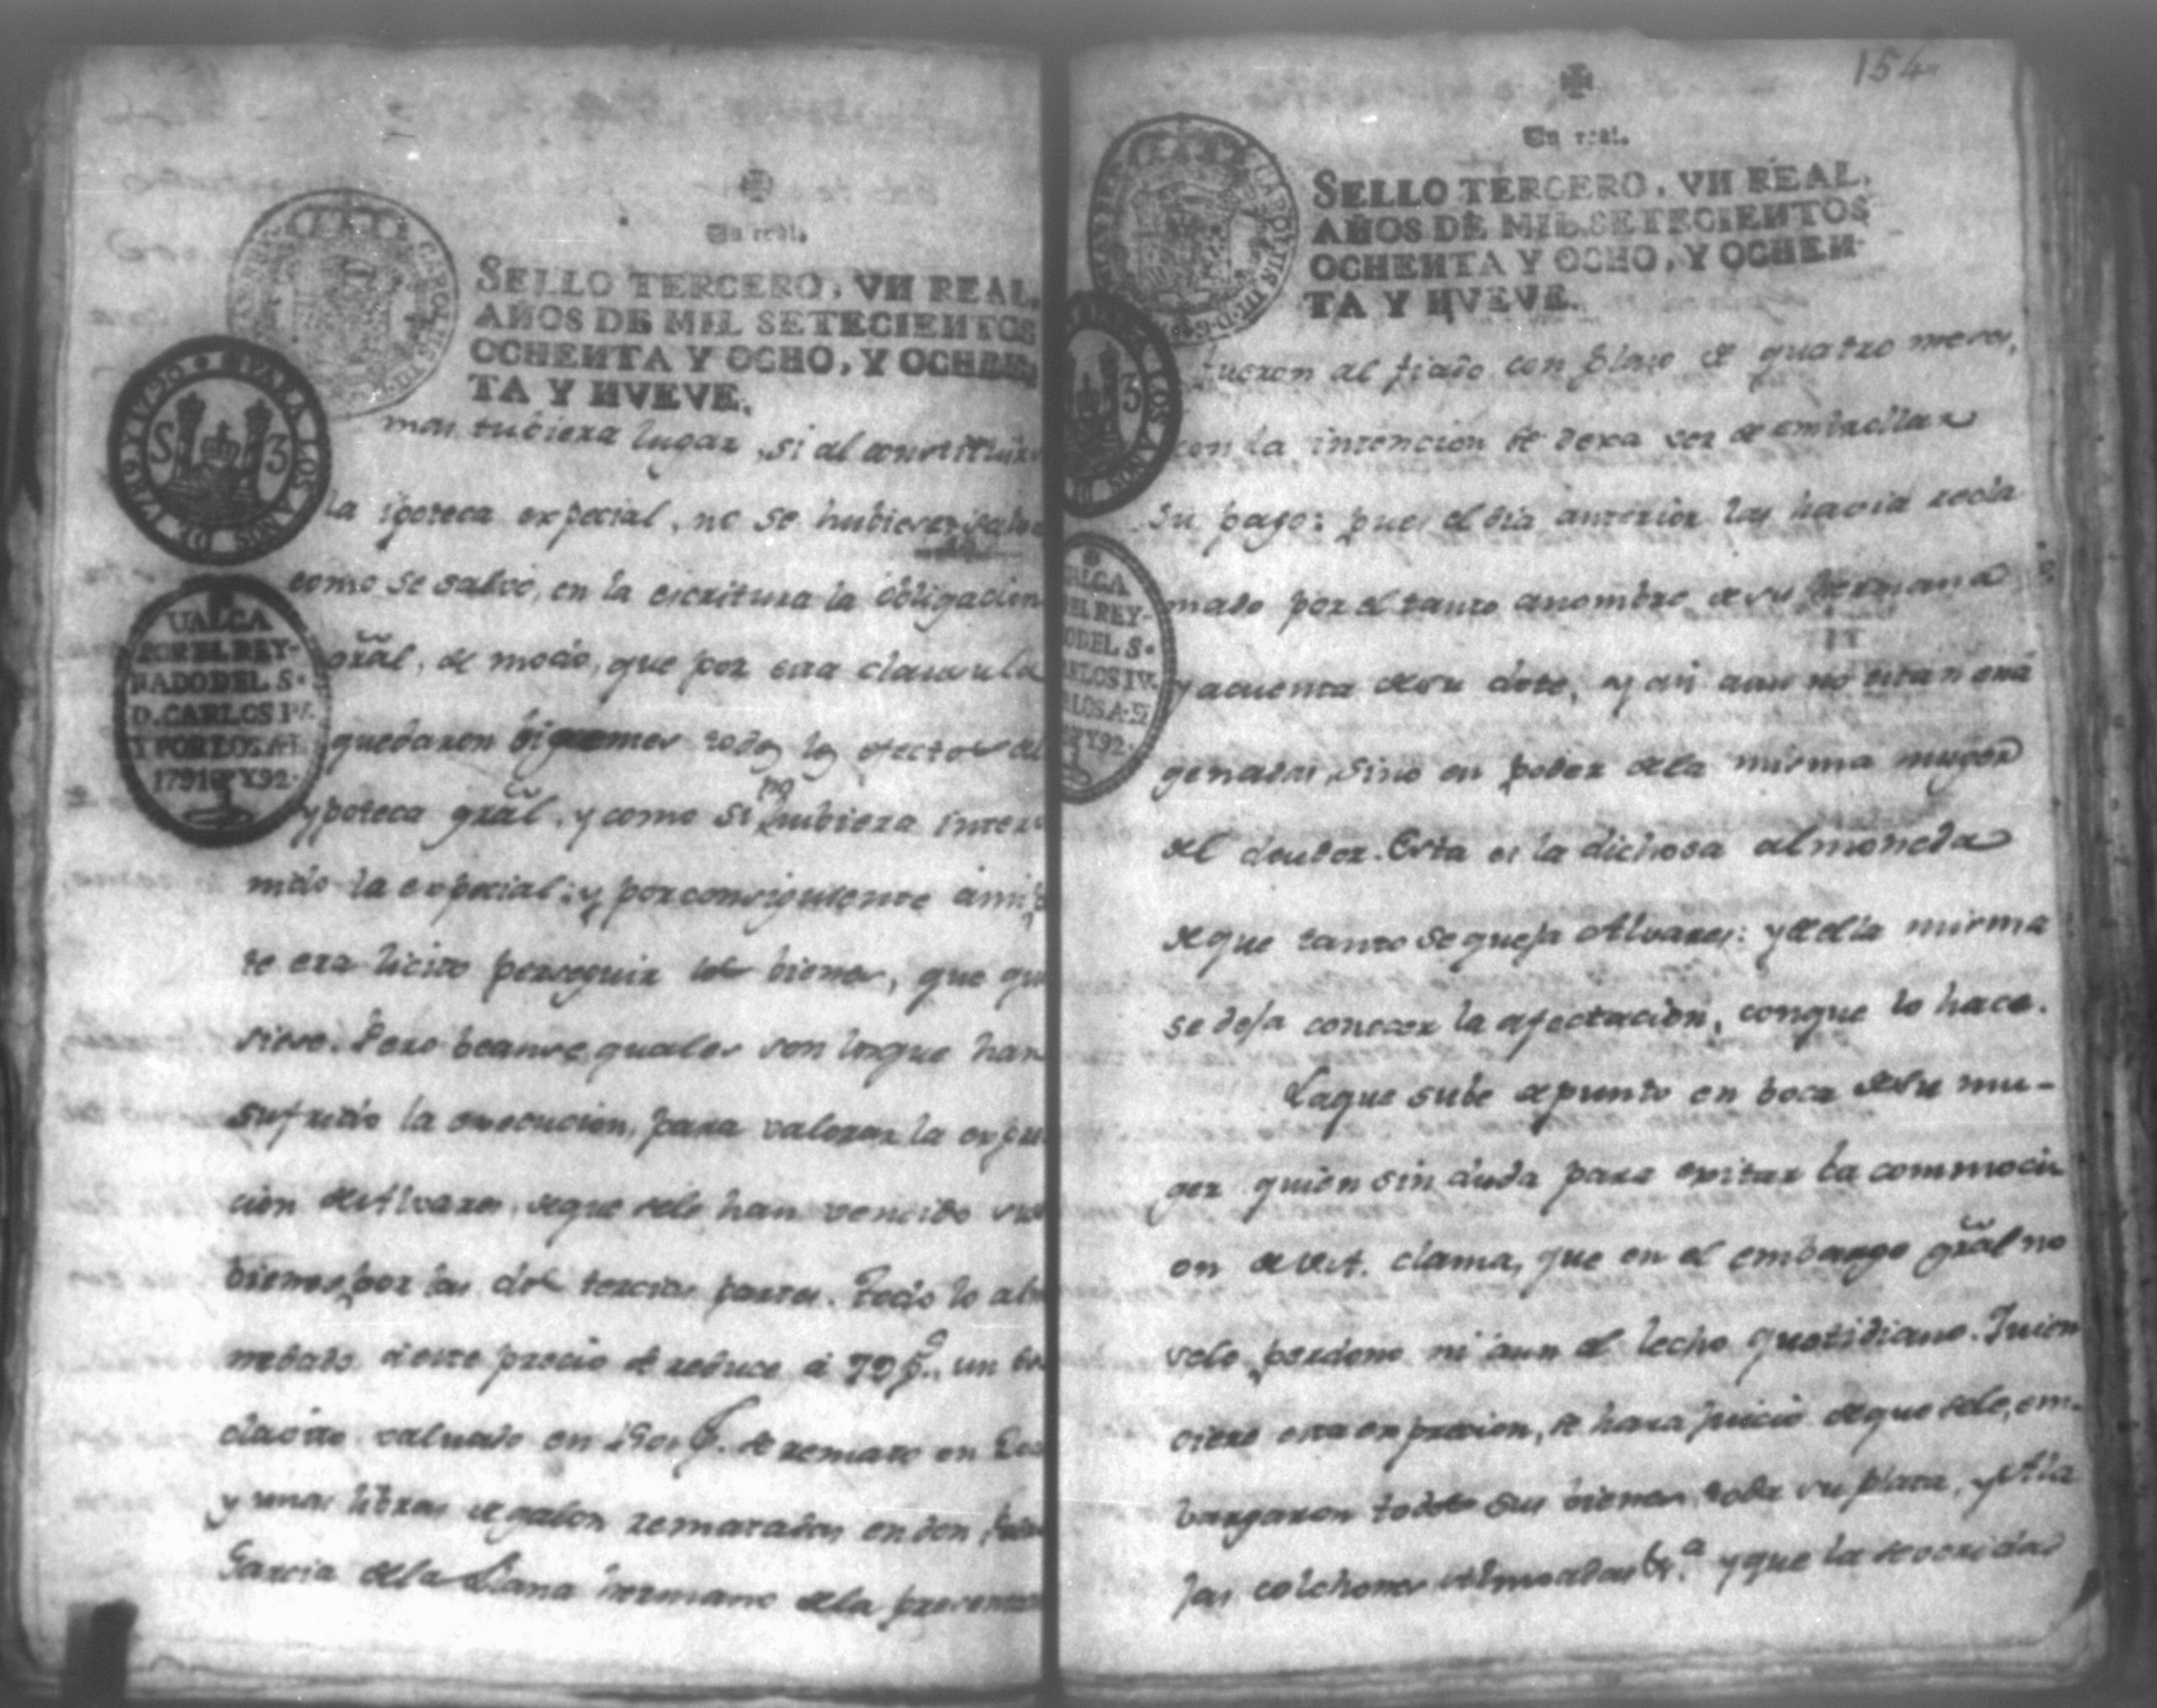 Un real.
SELLO TERCERO, VN REAL,
AÑOS DE MIL SETECIENTOS
OCHENTA Y OCHO, Y OCHEN
TA Y NVEVE.
PARA LOS AÑOS DE 1790 Y 1791
S 3
UALGA
POR EL REY-
NADO DEL S.
D. CARLOS IV.
Y POR LOS A.S
1791 Y 92.
mas tubiera lugar, si al constituir
la ipoteca expecial, no se hubiera salva
como se salvó, en la escritura la obligacion
grāl, de modo, que por esa clausula
quedaron todos los efectos de
ypoteca grāl. y como si no hubiera interve
nido la expecial: y por consiguiente ami
te era licito perseguir los bienes, que qui
siese. Pero beanse quales son los que han
sufrido la execucion, para valorar la expre
cion de Alvares, de que sele han vendido sus
bienes por las dos tercias partes. Todo lo al
nedado a este precio se reduce á p.s, un
valuado en p. se remato en
y unas libras de galon rematadas en don
Garcia de la Lama hermano de la presenta
154
Un real.
SELLO TERCERO, VN REAL,
AÑOS DE MIL SETECIENTOS
OCHENTA Y OCHO, Y OCHEN
TA Y NVEVE.
3
fueron al fiado con plazo de quatro meses,
con la intencion se dexa ver de embrollar
su pago: pues el dia anterior las havia recla
mado por el tanto a nombre de su hermana
y acuenta de su dote, y asi aun no estan ena
genadas, sino en poder de la misma muger
del deudor. Esta es la dichosa almoneda
de que tanto se queja Alvares: y de ella misma
se deja conocer la afectacion, conque lo hace.
La que sube de punto en boca de su mu-
ger quien sin duda para exitar la commoci
on de V.A. clama, que en el embargo grāl no
sele perdono ni aun el lecho quotidiano. Quien
oiere esta expresion, se hara juicio de que sele, em-
bargaron todos sus bienes toda su plata, y
los colchones almoadas &.a y que la severidad